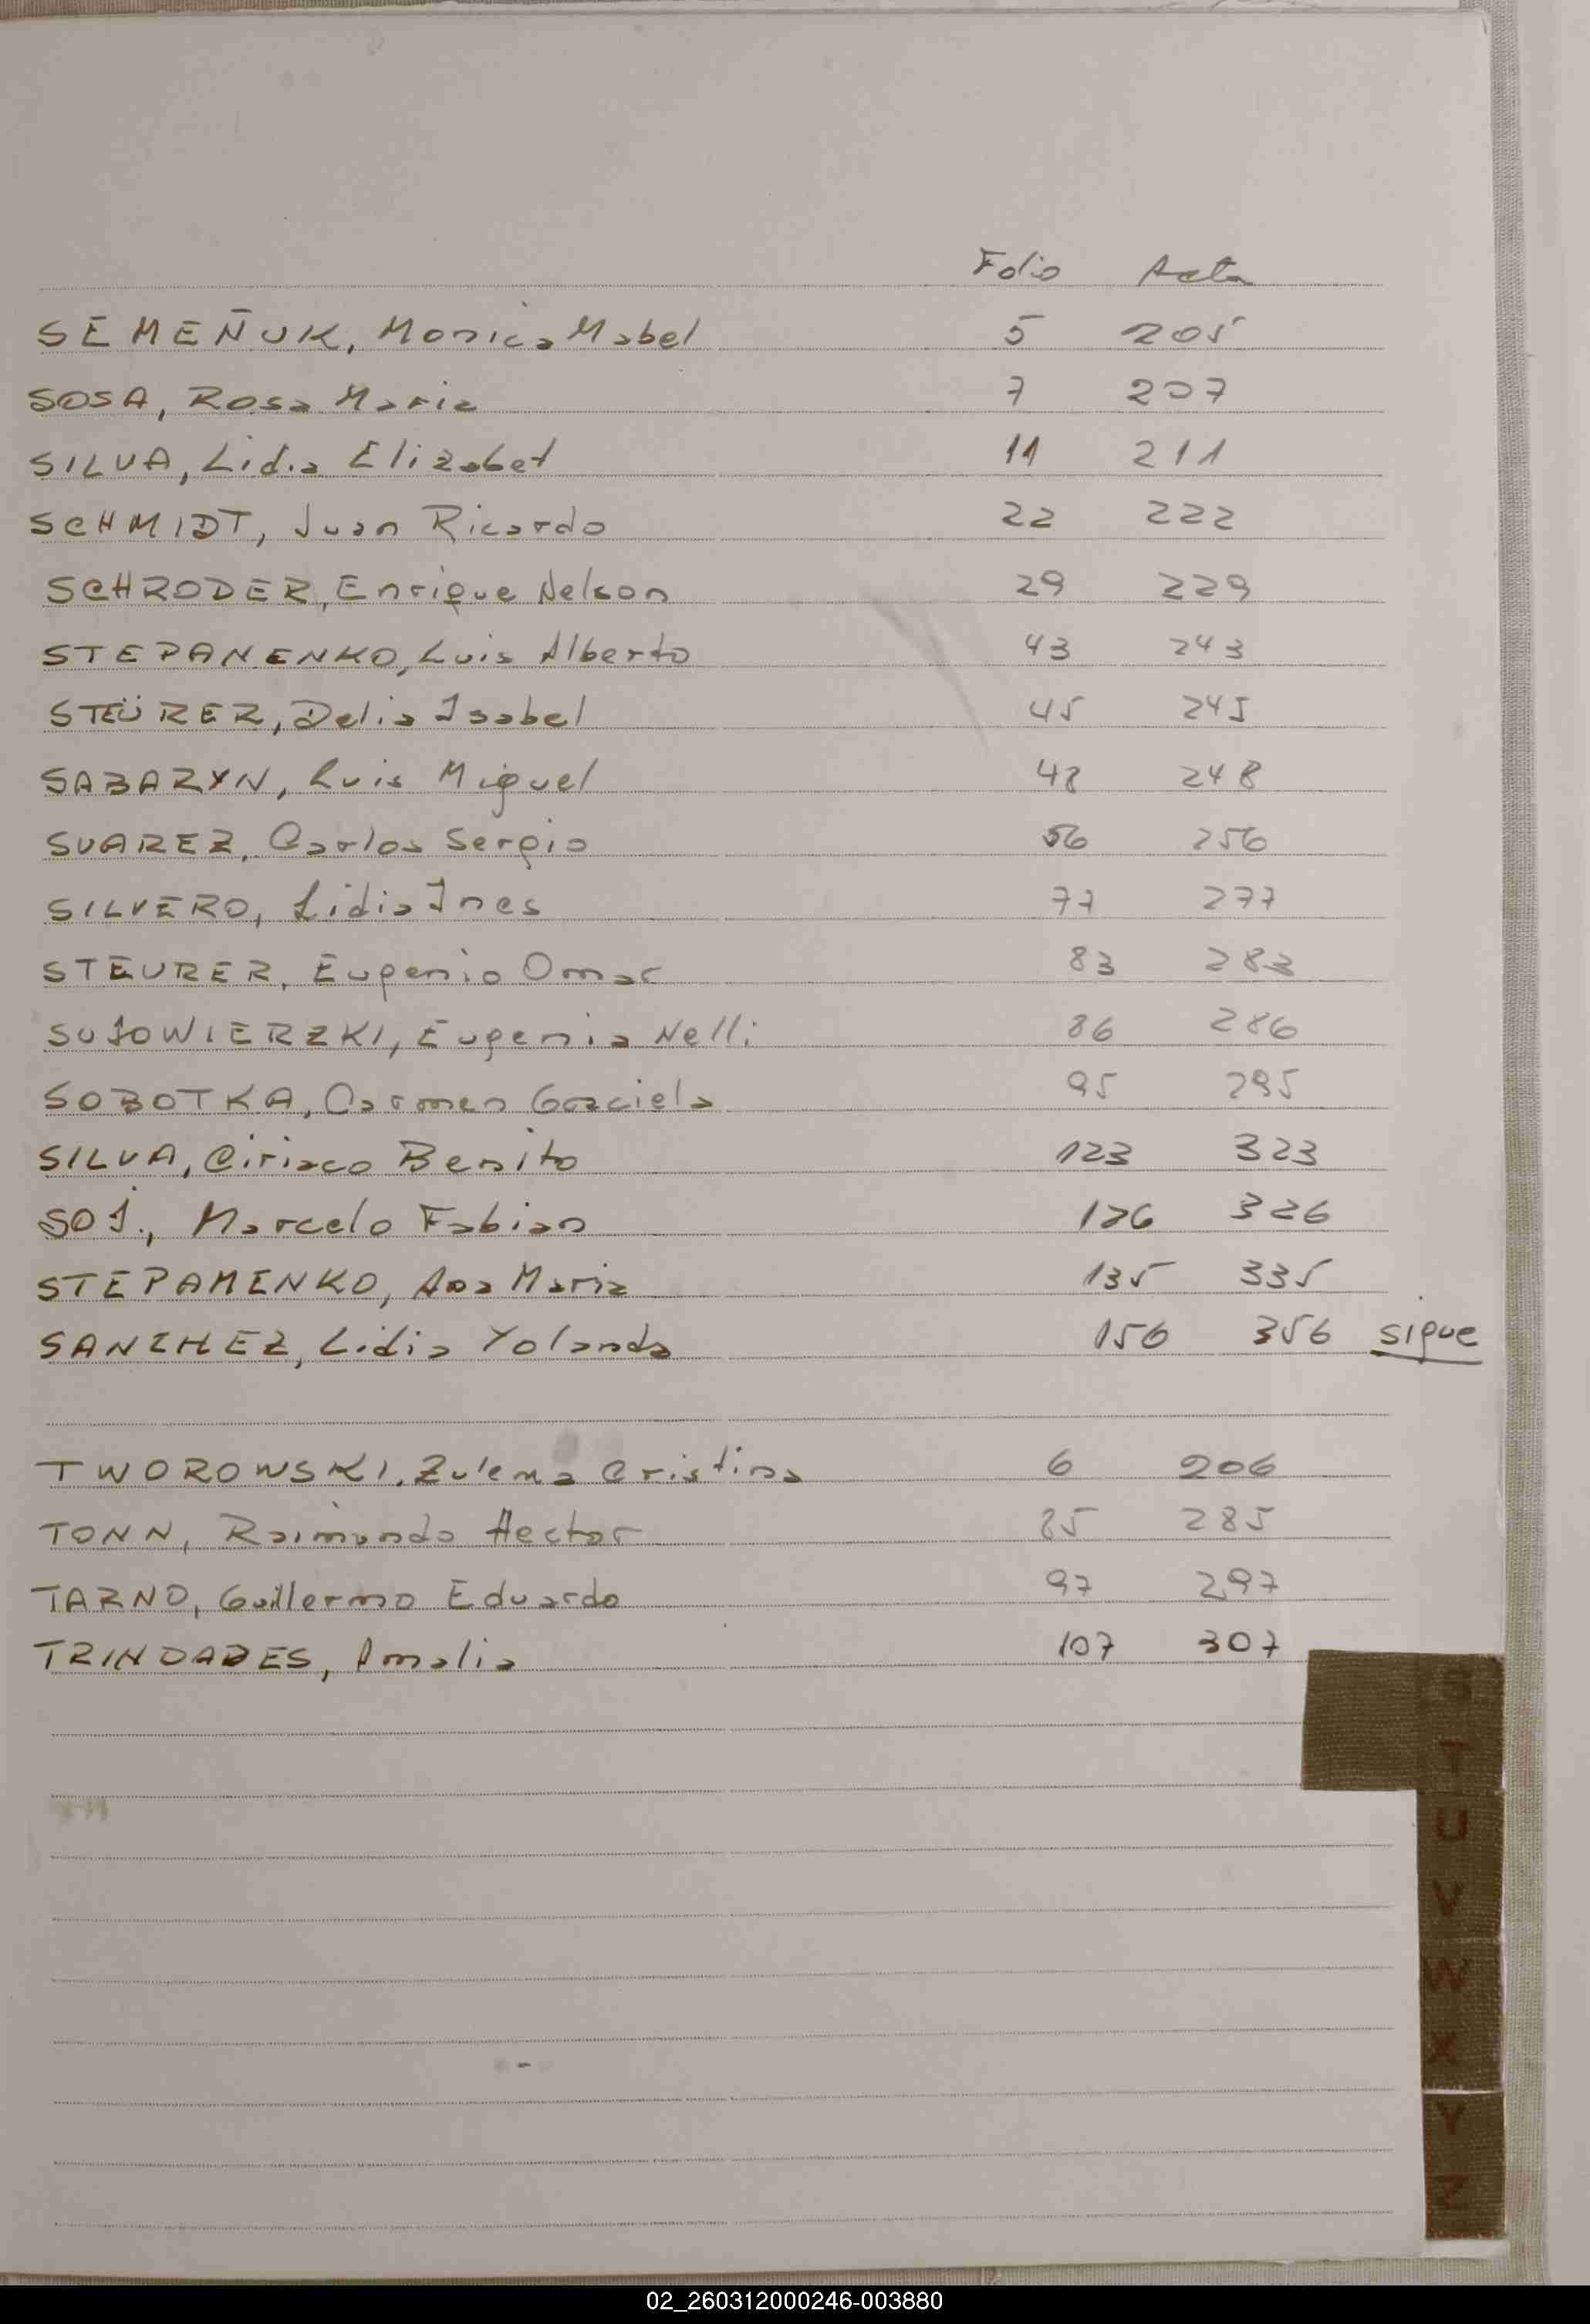 Folio Acta
SEMEÑUK, Monica Mabel 5 205
SOSA, Rosa Maria 7 207
SILVA, Lidia Elizabet 11 211
SCHMIDT, Juan Ricardo 22 222
SCHRODER, Enrique Nelson 29 229
STEPANENKO, Luis Alberto 43 243
STEÜRER, Delia Isabel 45 245
SABARYN, Luis Miguel 48 248
SUAREZ, Carlos Sergio 56 256
SILVERO, Lidia Ines 77 277
STEURER, Eugenio Omar 83 283
Eugenia Nelli 86 286
SOBOTKA, Carmen Graciela 95 295
SILVA, Ciriaco Benito 123 323
Marcelo Fabian 126 326
STEPAMENKO, Ana Maria 135 335
SANZHEZ, Lidia Yolanda 156 356 sigue
TWOROWSKI, Zulema Cristina 6 206
TONN, Raimundo Hector 85 285
TARNO, Guillermo Eduardo 97 297
TRINDADES, Amalia 107 307
S
T
U
V
W
X
Y
Z
02_260312000246-003880